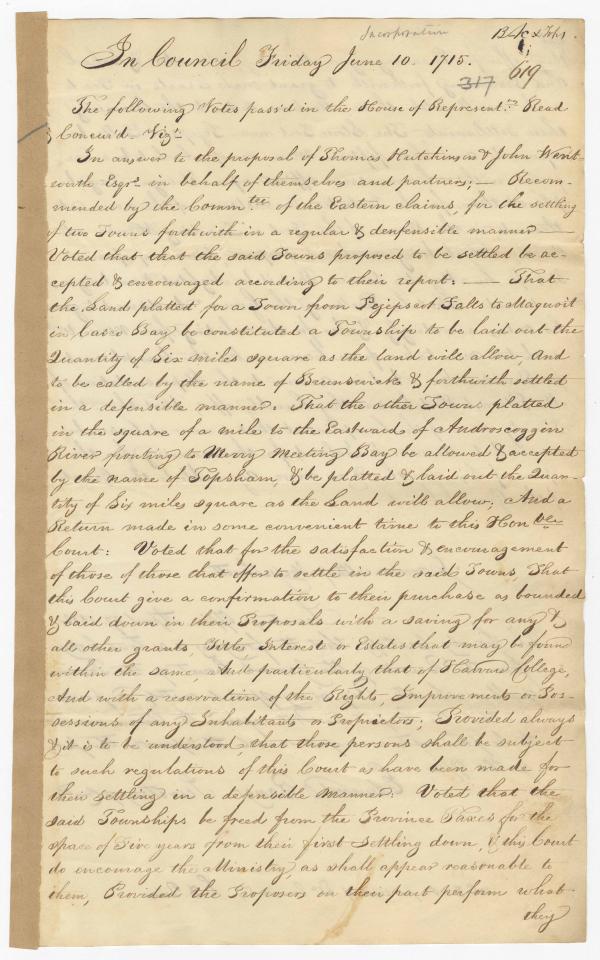 Incorporation
In Council Friday June 10. 1715.
317 619
The following Votes pass'd in the House of Represent.ves Read
& Concur'd - Vizt.
In answer to the proposal of Thomas Hutchinson & John Went-
worth Esqrs. in behalf of themselves and partners; — Recom-
mended by the Comm.tee of the Eastern claims, for the settling
of two Towns forthwith in a regular & denfensible manner —
Voted that that the said Towns proposed to be settled be ac-
cepted & encouraged according to their report: — That
the Land platted for a Town from Pejepscot Falls to Maquoit
in Casco Bay be constituted a Township to be laid out the
Quantity of Six miles square as the land will allow, And
to be called by the name of Brunswick & forthwith settled
in a defensible manner. That the other Town platted
in the square of a mile to the Eastward of Androscoggin
River fronting to Merry Meeting Bay be allowed & accepted
by the name of Topsham, & be platted & laid out the Quan-
tity of Six miles square as the Land will allow; And a
Return made in some convenient time to this Honble
Court: Voted that for the satisfaction & encouragement
of those of those that offer to settle in the said Towns, That
this Court give a confirmation to their purchase as bounded
& laid down in their Proposals with a saving for any &
all other grants, Title Interest or Estates that may be found
within the same And particularly that of Harvard College,
And with a reservation of the Rights, Improvements or Pos-
sessions of any Inhabitants or Proprietors; Provided always
& it is to be understood, that those persons shall be subject
to such regulations of this Court as have been made for
their settling in a defensible manner: Voted that the
said Townships be freed from the Province Taxes for the
space of Five years from their first settling down, & this Court
do encourage the Ministry, as shall appear reasonable to
them, Provided the Proposers on their part perform what
they